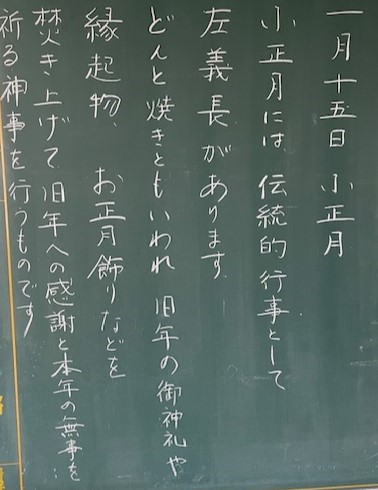 一月十五日 小正月
小正月には 伝統的行事として
左義長があります。
どんと焼きともいわれ 旧年の御神礼や
縁起物、お正月飾りなどを
焚き上げて 旧年への感謝と本年の無事を
祈る神事を行うものです